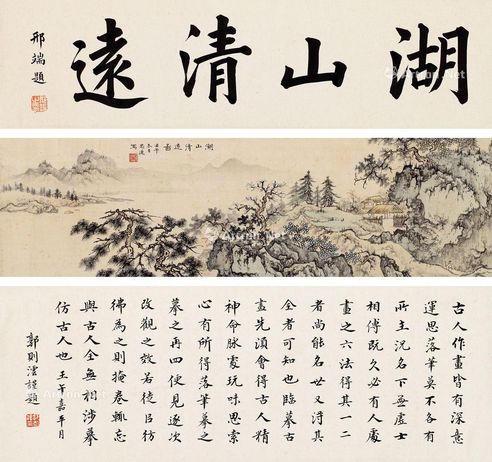 湖山清遠
邢端題
湖山清遠圖
古人作畫皆有深意
運思落筆莫不各有
所主況名下無虛士
相傳既久必有人處
畫之六法得其一二
者尚能名世又得其
全者可知也臨摹古
畫先須會得古人精
神命脈處玩味思索
心有所得落筆摹之
摹之再四便見逐次
改觀之效若徒自彷
彿為之則掩卷輒忘
與古人全無相涉摹
仿古人也 壬午嘉平月
郭則澐謹題
Artron.Net